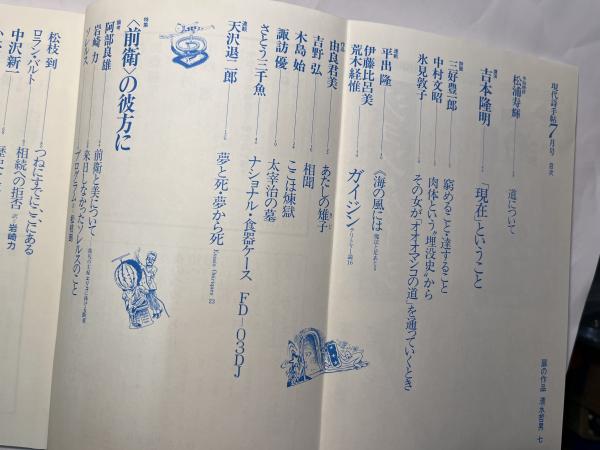 現代詩手帖7月号 目次
松浦寿輝 道について
吉本隆明 「現在」ということ
三好豊一郎 窮めること・達すること
中村文昭 肉体という“埋没史”から
氷見敦子 その女が「オイオマンコの道」を通っていくとき
連載
平出 隆 《海の風には
伊藤比呂美
荒木経惟 ガイジン
由良君美 あたしの雉子
吉野 弘 相聞
木島 始 ここは煉獄
諏訪 優 太宰治の墓
さとう三千魚 ナショナル・食器ケース FD-03DJ
連載
天沢退二郎 夢と死・夢から死
特集
〈前衛〉の彼方に
阿部良雄 前衛と美について
岩崎 力 来日しなかったソレルスのこと
ソレルス プログラム 松枝到
松枝 到 つねにすでに、ここにある
ロラン・バルト 相続への拒否 訳・岩崎力
中沢新一
扉の作品 清水哲男 七